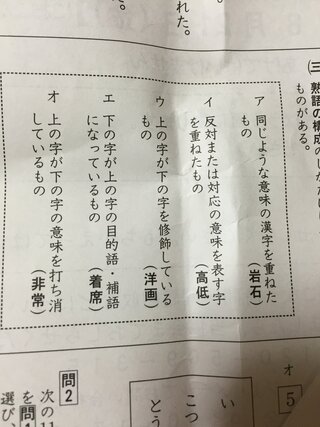 れた。
㈢
熟語の構成のしかたに
ものがある。
ア 同じような意味の漢字を重ねた
もの (岩石)
イ 反対または対応の意味を表す字
を重ねたもの (高低)
ウ 上の字が下の字を修飾している
もの (洋画)
エ 下の字が上の字の目的語・補語
になっているもの (着席)
オ 上の字が下の字の意味を打ち消
しているもの (非常)
オ
5
い
こつ
とう
問2
次の11
を問
選び、